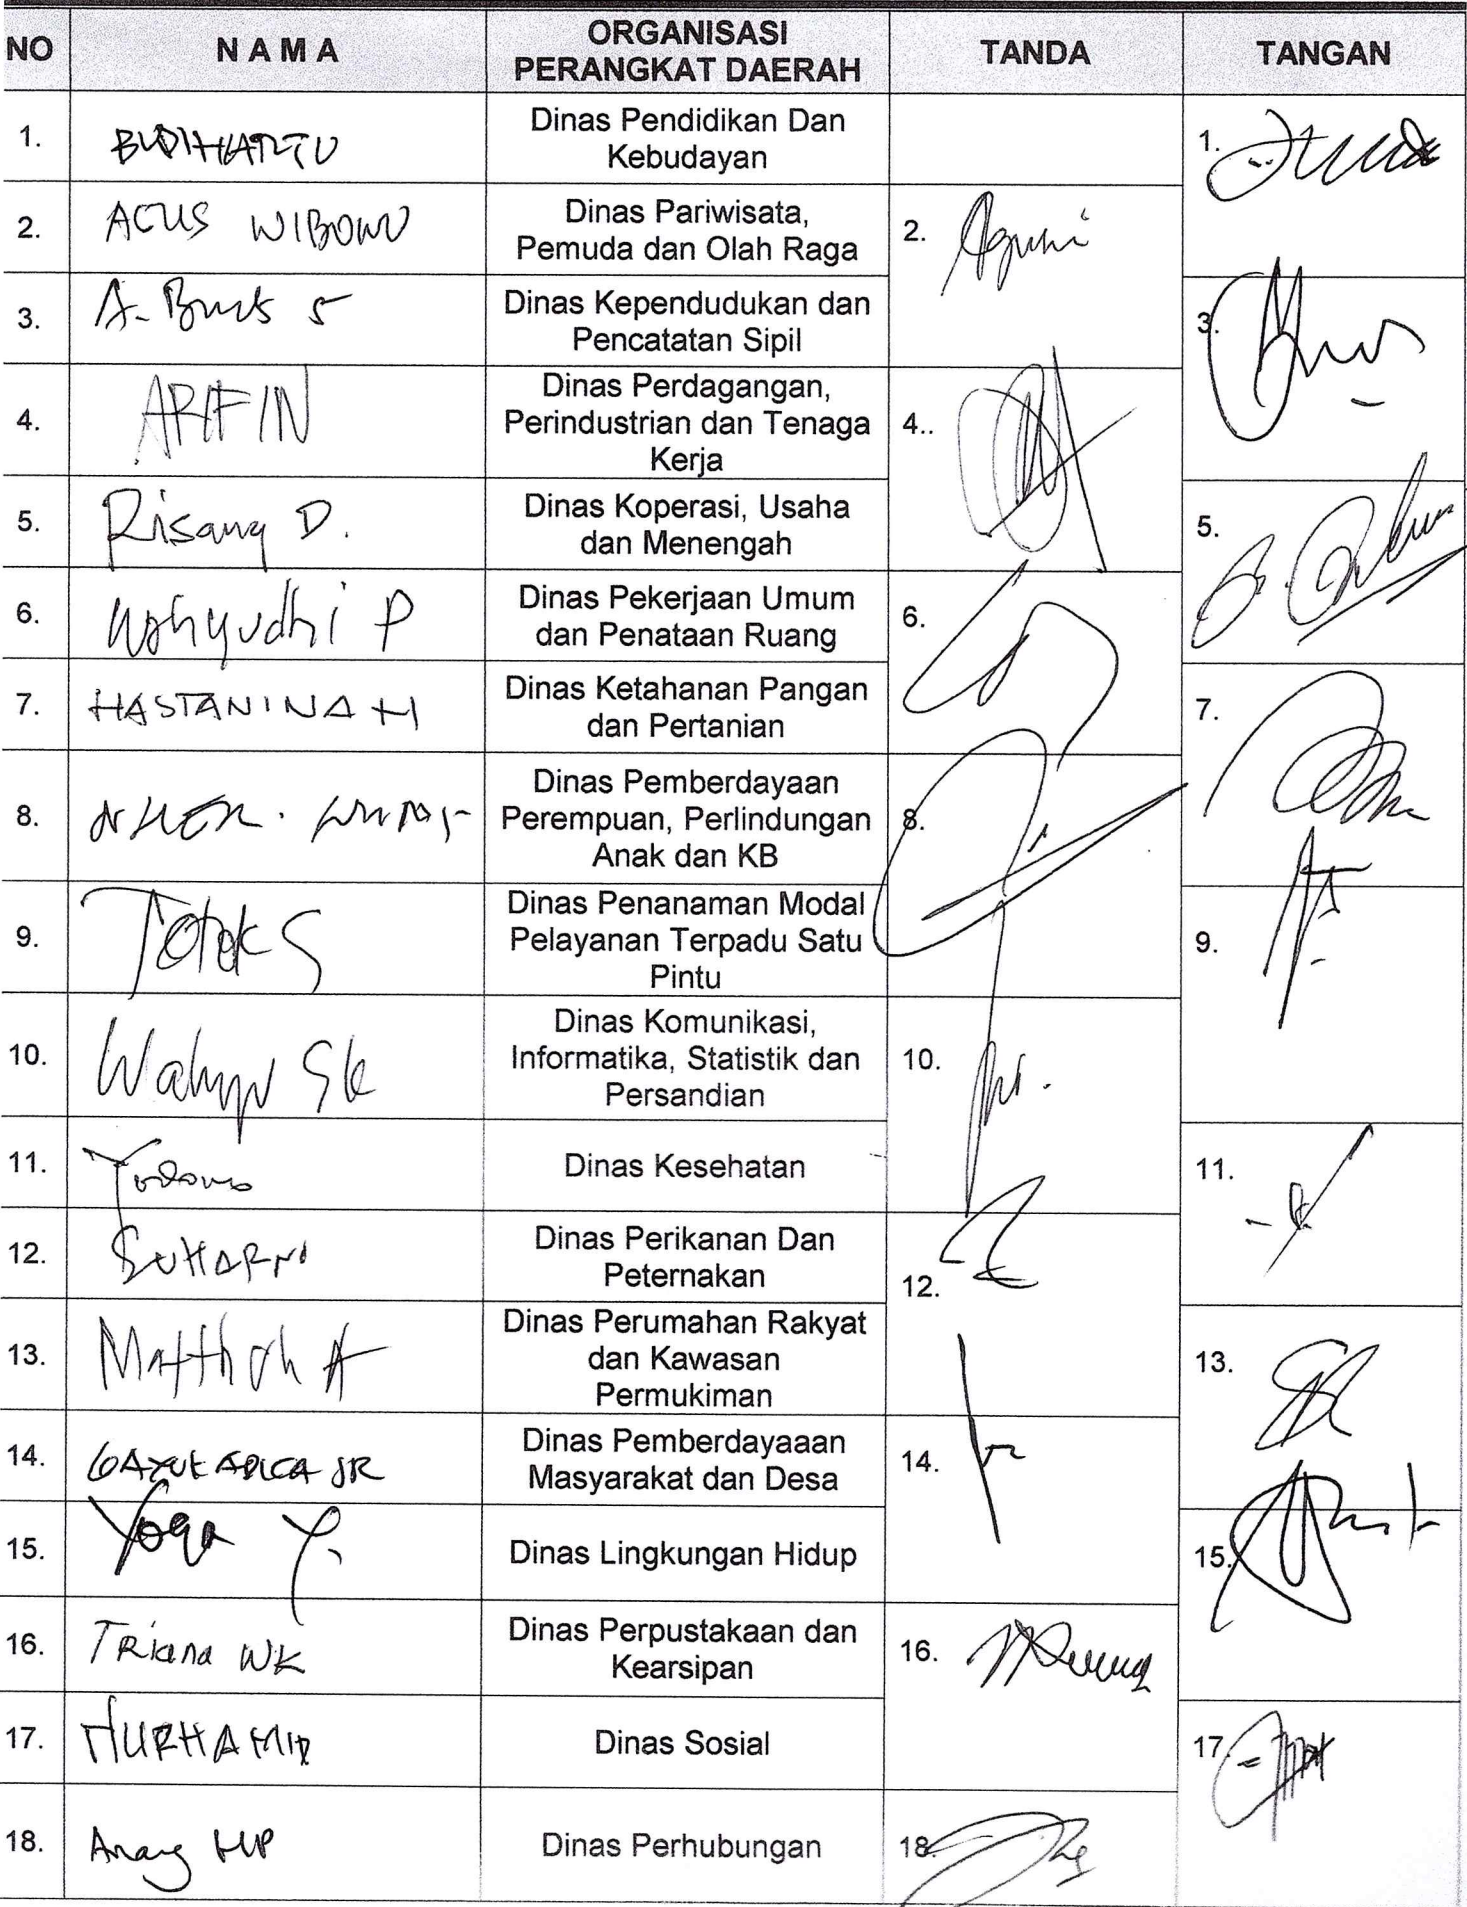 NO NAMA ORGANISASI PERANGKAT DAERAH TANDA TANGAN
1. BUDIHARTO Dinas Pendidikan Dan
Kebudayan 1.
2. AGUS WIBOWO Dinas Pariwisata,
Pemuda dan Olah Raga 2.
3. A. Dinas Kependudukan dan
Pencatatan Sipil 3.
4. ARIFIN Dinas Perdagangan,
Perindustrian dan Tenaga
Kerja 4..
5. Risang D. Dinas Koperasi, Usaha
dan Menengah 5.
6. Wahyudhi P Dinas Pekerjaan Umum
dan Penataan Ruang 6.
7. HASTANINA H Dinas Ketahanan Pangan
dan Pertanian 7.
8. Dinas Pemberdayaan
Perempuan, Perlindungan
Anak dan KB 8.
9. Totok S Dinas Penanaman Modal
Pelayanan Terpadu Satu
Pintu 9.
10. Wahyu Dinas Komunikasi,
Informatika, Statistik dan
Persandian 10.
11. Dinas Kesehatan 11.
12. Dinas Perikanan Dan
Peternakan 12.
13. Dinas Perumahan Rakyat
dan Kawasan
Permukiman 13.
14. Dinas Pemberdayaaan
Masyarakat dan Desa 14.
15. Yoga Y. Dinas Lingkungan Hidup 15.
16. Triana WK Dinas Perpustakaan dan
Kearsipan 16.
17. NURHAMID Dinas Sosial 17.
18. Anang MP Dinas Perhubungan 18.